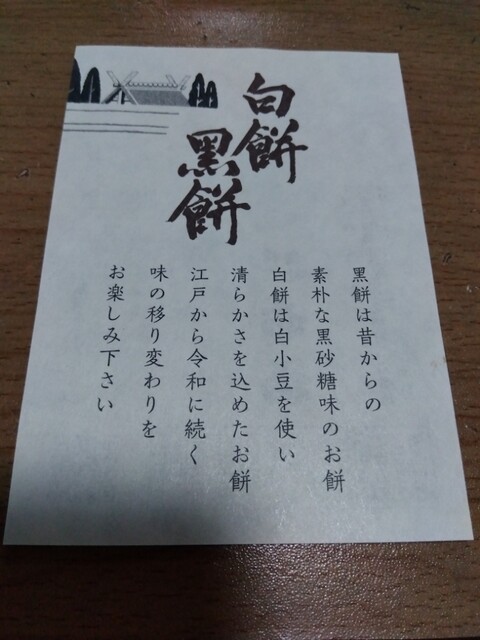 白餅
黑餅
黒餅は昔からの
素朴な黒砂糖味のお餅
白餅は白小豆を使い
清らかさを込めたお餅
江戸から令和に続く
味の移り変わりを
お楽しみ下さい